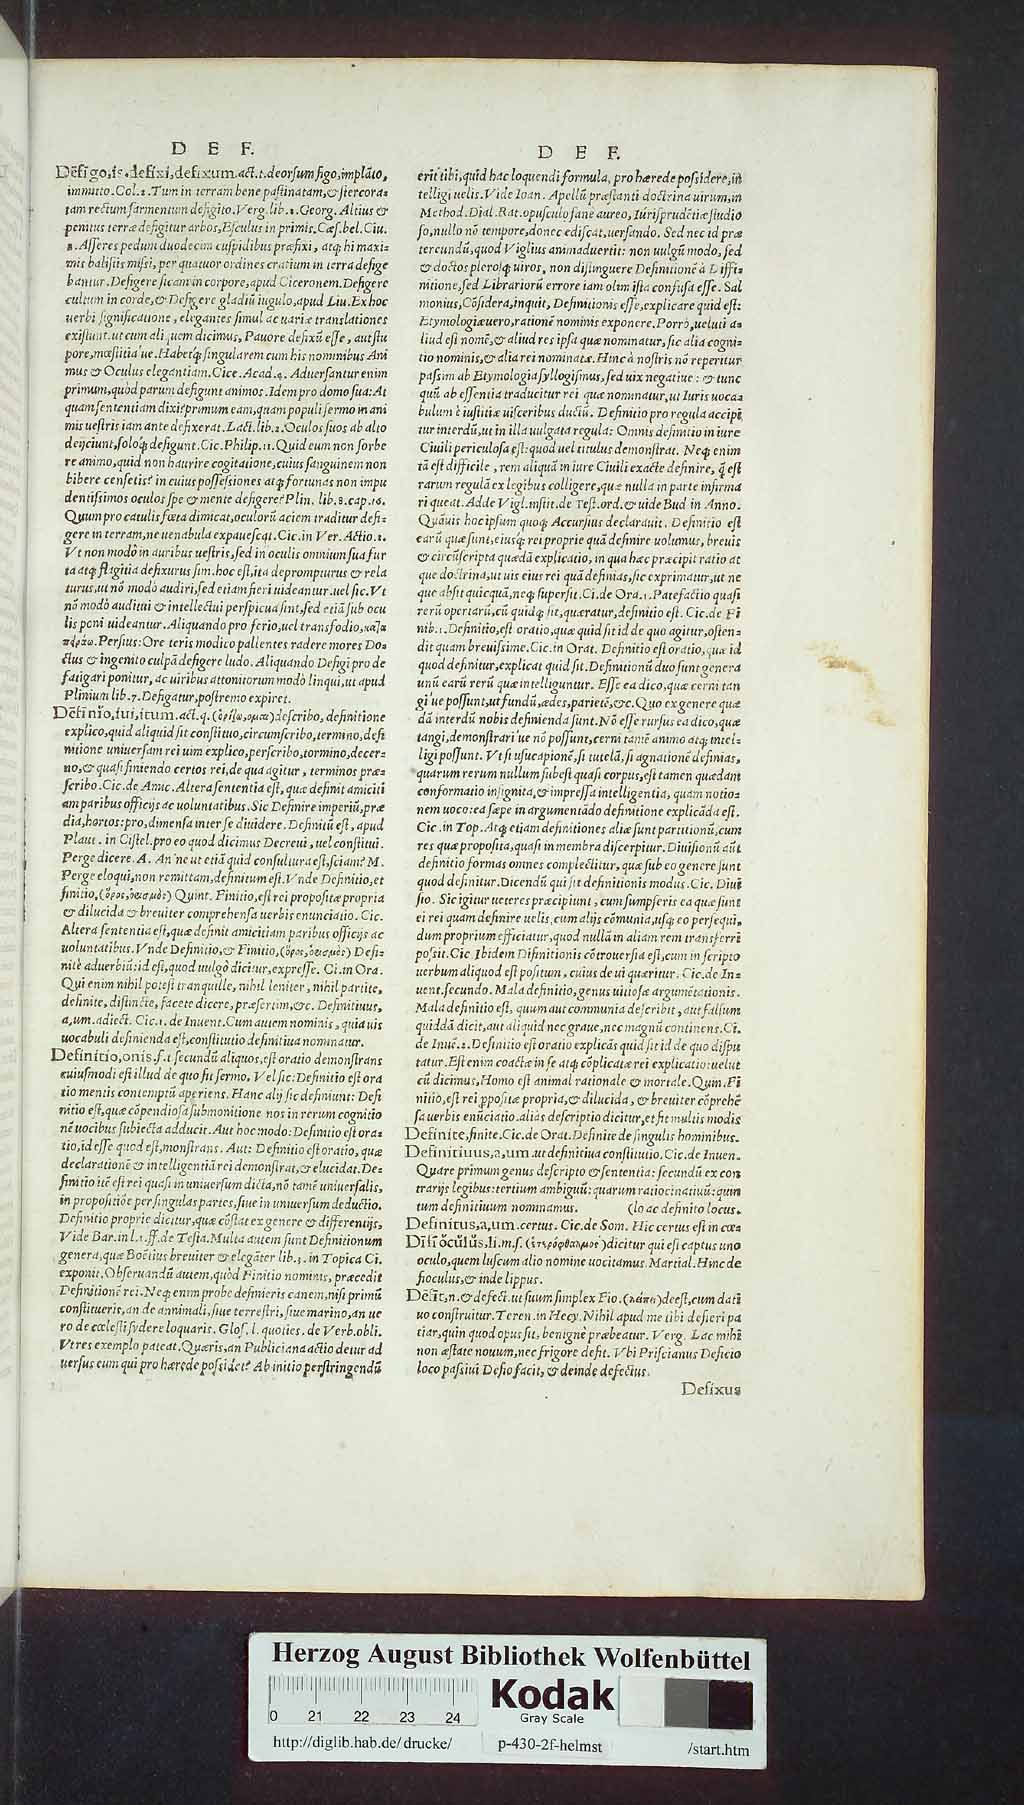 D E F.
Defigo, is, defixi, defixum. act. t. deorsum figo, implāto,
immitto. Col. 2. Tum in terram bene pastinatam, & stercora-
tam rectum sarmentum defigito. Verg. lib. 2. Georg. Altius &
penitus terræ defigitur arbos, Esculus in primis. Cæs. bel. Ciu.
2. Asseres pedum duodecim cuspidibus præfixi, atq; hi maxi-
mis balistis missi, per quatuor ordines cratium in terra defige
bantur. Defigere sicam in corpore, apud Ciceronem. Defigere
cultum in corde, & Defigere gladiū iugulo, apud Liu. Ex hoc
uerbi significatione, elegantes simul ac uariæ translationes
existunt. ut cum aliquem dicimus, Pauore defixū esse, aut stu
pore, mœstitia'ue. Habetq; singularem cum his nominibus Ani
mus & Oculus elegantiam. Cice. Acad. 4. Aduersantur enim
primum, quòd parum defigunt animos. Idem pro domo sua: At
quam sententiam dixit? primum eam, quam populi sermo in ani
mis uestris iam ante defixerat. Lact. lib. 2. Oculos suos ab alto
deijciunt, soloq; defigunt. Cic. Philip. 11. Quid eum non sorbe
re animo, quid non haurire cogitatione, cuius sanguinem non
bibere censetis? in cuius possessiones atq; fortunas non impu
dentissimos oculos spe & mente defigere? Plin. lib. 8. cap. 16.
Quum pro catulis fœta dimicat, oculorū aciem traditur defi-
gere in terram, ne uenabula expauescat. Cic. in Ver. Actio. 2.
Vt non modò in auribus uestris, sed in oculis omnium sua fur
ta atq; flagitia defixurus sim. hoc est, ita deprompturus & rela
turus, ut nō modò audiri, sed etiam fieri uideantur. uel sic. Vt
nō modò auditui & intellectui perspicua sint, sed etiā sub ocu
lis poni uideantur. Aliquando pro ferio, uel transfodio,
Persius: Ore teris modico pallentes radere mores Do-
ctus & ingenito culpā defigere ludo. Aliquando Defigi pro de
fatigari ponitur, ac uiribus attonitorum modò linqui, ut apud
Plinium lib. 7. Defigatur, postremo expiret.
Definio, iui, itum. act. q. (ὁρίζω, ομαι) describo, definitione
explico, quid aliquid sit constituo, circumscribo, termino, defi
nitione uniuersam rei uim explico, perscribo, tormino, decer-
no, & quasi finiendo certos rei, de qua agitur, terminos præ-
scribo. Cic. de Amic. Altera sententia est, quæ definit amiciti
am paribus officijs ac uoluntatibus. Sic Definire imperiū, præ
dia, hortos: pro, dimensa inter se diuidere. Definitū est, apud
Plaut. in Cistel. pro eo quod dicimus Decreui, uel constitui.
Perge dicere. A. An ne ut etiā quid consultura est, sciam? M.
Perge eloqui, non remittam, definitum est. Vnde Definitio, et
finitio, (ὅρος, ὁρισμὸς) Quint. Finitio, est rei propositæ propria
& dilucida & breuiter comprehensa uerbis enunciatio. Cic.
Altera sententia est, quæ definit amicitiam paribus officijs ac
uoluntatibus. Vnde Definitio, & Finitio, (ὅρος, ὁρισμὸς) Defi-
nitè aduerbiū: id est, quod uulgò dicitur, expresse. Ci. in Ora.
Qui enim nihil potest tranquille, nihil leniter, nihil partite,
definite, distincte, facete dicere, præsertim, &c. Definitiuus,
a, um. adiect. Cic. 1. de Inuent. Cum autem nominis, quia uis
uocabuli definienda est, constitutio definitiua nominatur.
Definitio, onis. f. t secundū aliquos, est oratio demonstrans
cuiusmodi est illud de quo fit sermo. Vel sic: Definitio est ora
tio mentis contemptū aperiens. Hanc alij sic definiunt: Defi
nitio est, quæ cōpendiosa submonitione nos in rerum cognitio
nē uocibus subiecta adducit. Aut hoc modo: Definitio est ora-
tio, id esse quod est, monstrans. Aut: Definitio est oratio, quæ
declarationē & intelligentiā rei demonstrat, & elucidat. De-
finitio itē est rei quasi in uniuersum dicta, nō tamē uniuersalis,
in propositiōe per singulas partes, siue in uniuersum deductio.
Definitio proprie dicitur, quæ cōstat ex genere & differentijs,
Vide Bar. in l. 1. ff. de Testa. Multa autem sunt Definitionum
genera, quæ Boëtius breuiter & elegāter lib. 3. in Topica Ci.
exponit. Obseruandū autem, quòd Finitio nominis, præcedit
Definitionē rei. Neq; enim probe definieris canem, nisi primū
constitueris, an de annimali, siue terrestri, siue marino, an ue
ro de cœlesti sydere loquaris. Glos. l. quoties. de Verb. obli.
Vt res exemplo pateat. Quæris, an Publiciana actio detur ad
uersus eum qui pro hærede possidet? Ab initio perstringendū
D E F.
erit tibi, quid hac loquendi formula, pro hærede possidere, in
telligi uelis. Vide Ioan. Apellū præstanti doctrina uirum, in
Method. Dial. Rat. opusculo sane aureo, Iurisprudētiæ studio
so, nullo nō tempore, donec ediscat, uersando. Sed nec id præ
tereundū, quod Viglius animaduertit: non uulgū modo, sed
& doctos plerosq; uiros, non distinguere Definitionē à Diffi-
nitione, sed Librariorū errore iam olim ista confusa esse. Sal
monius, Cōsidera, inquit, Definitionis esse, explicare quid est:
Etymologiæ uero, rationē nominis exponere. Porrò, ueluti a-
liud est nomē, & aliud res ipsa quæ nominatur, sic alia cogni-
tio nominis, & alia rei nominatæ. Hinc à nostris nō reperitur
passim ab Etymologia syllogismus, sed uix negatiue: & tunc
quū ab essentia traducitur rei quæ nominatur, ut Iuris uoca-
bulum è iustitiæ uisceribus ductū. Definitio pro regula accipi
tur interdū, ut in illa uulgata regula: Omnis definitio in iure
Ciuili periculosa est: quod uel titulus demonstrat. Neq; enim
tā est difficile, rem aliquā in iure Ciuili exacte definire, q̄ est
rarum regulā ex legibus colligere, quæ nulla in parte infirma
ri queat. Adde Vigl. instit. de Test. ord. & uide Bud in Anno.
Quāuis hoc ipsum quoq; Accursius declarauit. Definitio est
earū quæ sunt, eiusq; rei proprie quā definire uolumus, breuis
& circūscripta quædā explicatio, in qua hæc præcipit ratio at
que doctrina, ut uis eius rei quā definias, sic exprimatur, ut ne
que absit quicquā, neq; supersit. Ci. de Ora. 1. Patefactio quasi
rerū opertarū, cū quidq; sit, quæratur, definitio est. Cic. de Fi
nib. 1. Definitio, est oratio, quæ quid sit id de quo agitur, osten-
dit quam breuissime. Cic. in Orat. Definitio est oratio, quæ id
quod definitur, explicat quid sit. Definitionū duo sunt genera
unū earū rerū quæ intelliguntur. Esse ea dico, quæ cerni tan
gi'ue possunt, ut fundū, ædes, parietē, &c. Quo ex genere quæ
dā interdū nobis definienda sunt. Nō esse rursus ea dico, quæ
tangi, demonstrari'ue nō possunt, cerni tamē animo atq; intel-
ligi possunt. Vt si usucapionē, si tutelā, si agnationē definias,
quarum rerum nullum subest quasi corpus, est tamen quædam
conformatio insignita, & impressa intelligentia, quam notio-
nem uoco: ea sæpe in argumentādo definitione explicāda est.
Cic. in Top. Atq; etiam definitiones aliæ sunt partitionū, cum
res quæ proposita, quasi in membra discerpitur. Diuisionū aūt
definitio formas omnes complectitur, quæ sub eo genere sunt
quod definitur. Dicendū qui sit definitionis modus. Cic. Diui
sio. Sic igitur ueteres præcipiunt, cum sumpseris ea quæ sunt
ei rei quam definire uelis, cum alijs cōmunia, usq; eo persequi,
dum proprium efficiatur, quod nullā in aliam rem transferri
possit. Cic Ibidem Difinitionis cōtrouersia est, cum in scripto
uerbum aliquod est positum, cuius de ui quæritur. Cic. de In-
uent. secundo. Mala definitio, genus uitiosæ argumētationis.
Mala definitio est, quum aut communia describit, aut falsum
quiddā dicit, aut aliquid nec graue, nec magnū continens. Ci.
de Inuē. 2. Definitio est oratio explicās quid sit id de quo dispu
tatur. Est enim coactæ in se atq; cōplicatæ rei explicatio: uelut
cū dicimus, Homo est animal rationale & mortale. Quin. Fi
nitio, est rei ꝓpositæ propria, & dilucida, & breuiter cōprehē
sa uerbis enūciatio. aliàs descriptio dicitur, et fit multis modis
Definite, finite. Cic. de Orat. Definite de singulis hominibus.
Definitiuus, a, um. ut definitiua constitutio. Cic. de Inuen.
Quare primum genus de scripto & sententia: secundū ex con
trarijs legibus: tertium ambiguū: quarum ratiocinatiuū: quin
tum definitiuum nominamus. (lo ac definito locus.
Definitus, a, um. certus. Cic. de Som. Hic certus est in cœ-
Defi oculus, li. m. s. (ἑτερόφθαλμος) dicitur qui est captus uno
oculo, quem luscum alio nomine uocitamus. Martial. Hinc de
fioculus, & inde lippus.
Defit, n. & defect. ut suum simplex Fio. deest, cum dati
uo construitur. Teren. in Hecy. Nihil apud me tibi defieri pa
tiar, quin quod opus sit, benignè præbeatur. Verg. Lac mihi
non æstate nouum, nec frigore defit. Vbi Priscianus Deficio
loco passiui Defio facit, & deinde defectus.
Defixus
Herzog August Bibliothek Wolfenbüttel
Kodak
Gray Scale
0 21 22 23 24
http://diglib.hab.de/drucke/ p-430-2f-helmst /start.htm